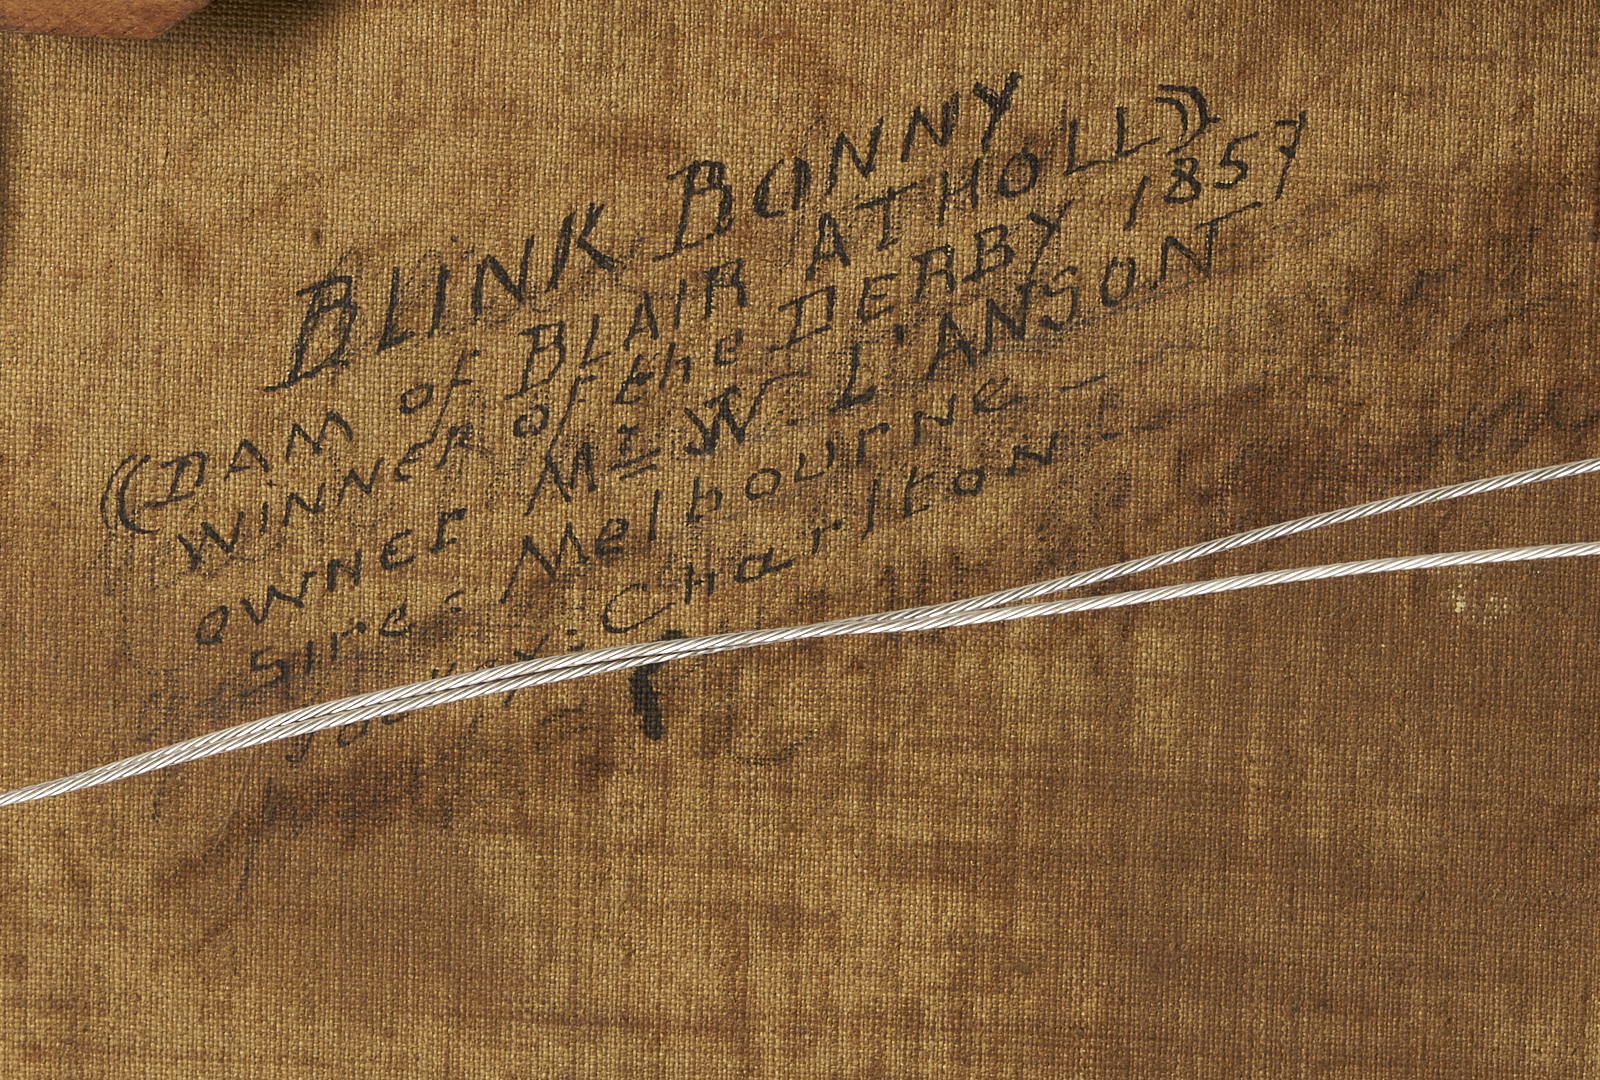 BLINK BONNY
((DAM of BLAIR ATHOLL))
WINNER of the DERBY 1857
OWNER Mr W. L'ANSON
Sire: Melbourne
Jockey: Charlton